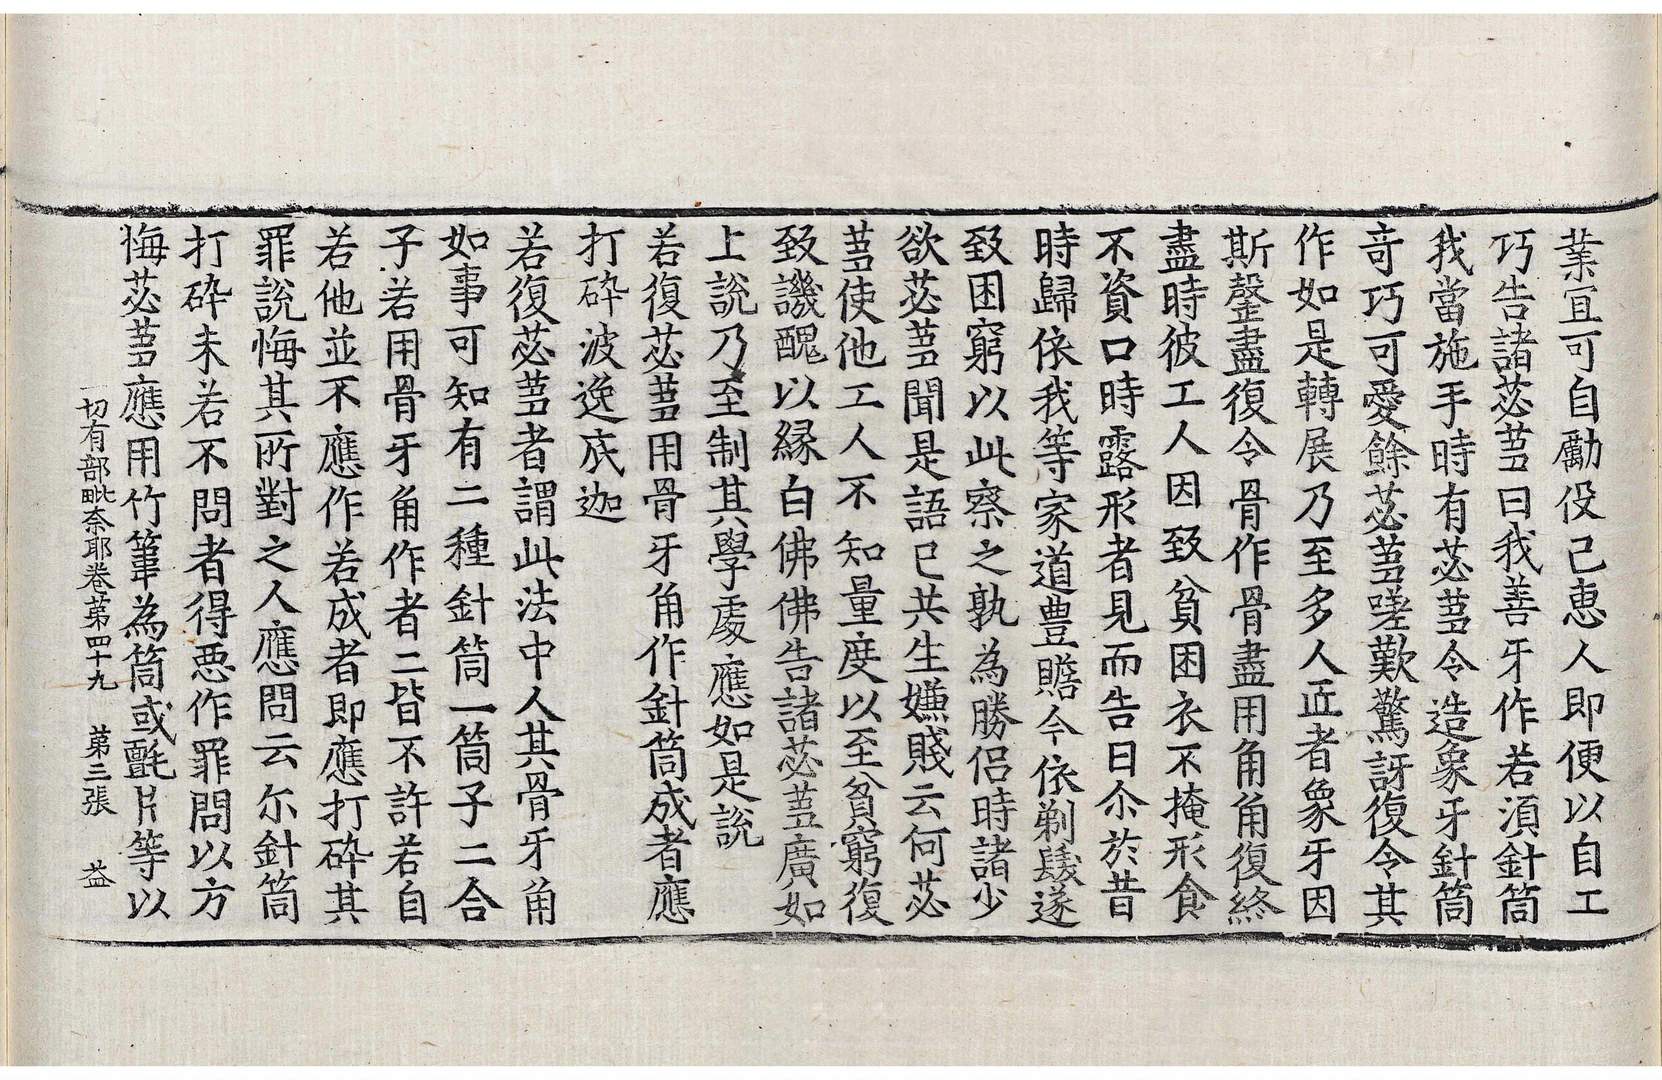 業冝可自勵役己惠人即便以自工
巧告諸苾蒭曰我善牙作若湏針筒
我當施手時有苾蒭令造象牙針筒
竒巧可愛餘苾蒭嗟歎驚訝復令其
作如是轉展乃至多人匠者象牙因
斯罄盡復令骨作骨盡用角角復終
盡時彼工人因致貧困衣不掩形食
不資口時露形者見而告曰尒於昔
時歸依我等家道豊贍今依剃髮遂
致困窮以此察之孰為勝侶時諸少
欲苾蒭聞是語已共生嫌賤云何苾
蒭使他工人不知量度以至貧窮復
致譏醜以縁白佛佛告諸苾蒭廣如
上說乃至制其學處應如是說
若復苾蒭用骨牙角作針筒成者應
打碎波逸底迦
若復苾蒭者謂此法中人其骨牙角
如事可知有二種針筒一筒子二合
子若用骨牙角作者二皆不許若自
若他並不應作若成者即應打碎其
罪說悔其所對之人應問云尒針筒
打碎未若不問者得惡作罪問以方
悔苾蒭應用竹葦為筒或氈片等以
一切有部毗奈耶卷第四十九 第三張 益